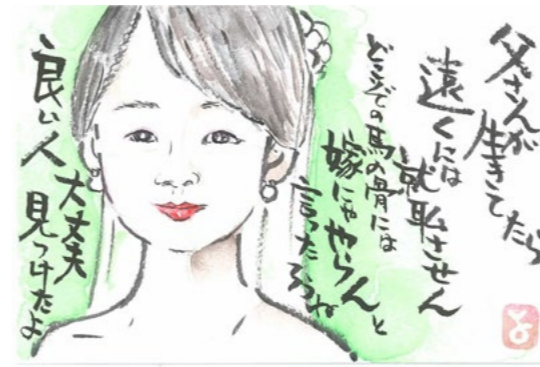 父さんが
生きてたら
遠くには
就耺させん
どこぞの馬の骨には
嫁にゃやらんと
言ったろうね
大丈夫
良い人
見つけたよ